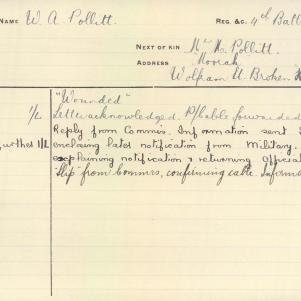 NAME W. A. Pollitt. REG. &C. 4th Batt
NEXT OF KIN Mr H. Pollitt.
ADDRESS Moorak
Wolfram St Broken
"Wounded"
1/L Letter acknowledged. P/Cable forwarded
Reply from Commis. Information sent
1/L enclosing later notification from Military.
explaining notification & returning Official
Slip" from Commrs, confirming cable. Informa